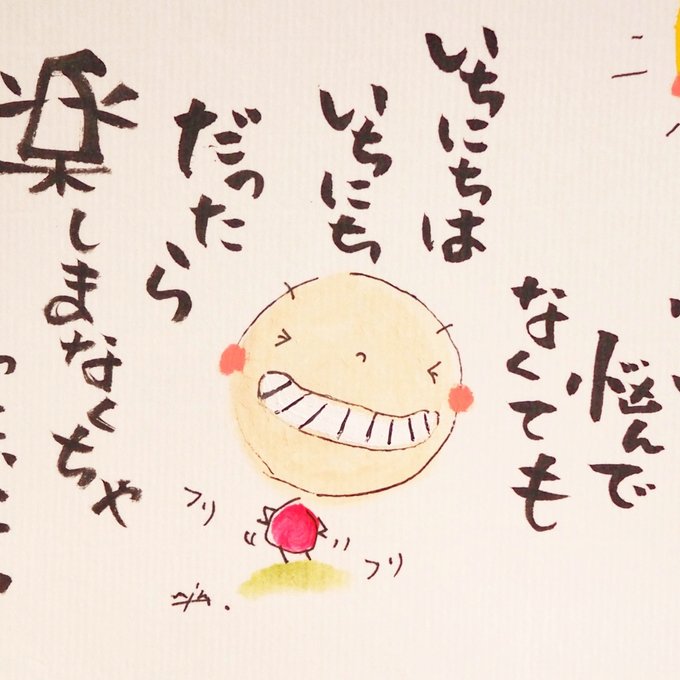 悩んで
なくても
いちにちは
いちにち
だったら
楽しまなくちゃ
フリ
フリ